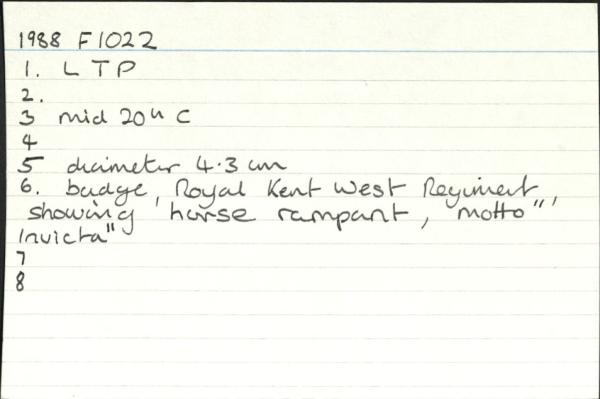 1988 F1022
1. L T P
2.
3 mid 20th C
4
5 diameter 4.3 cm
6. badge, Royal Kent West Regiment,
showing horse rampant, "motto"
Invicta"
7
8